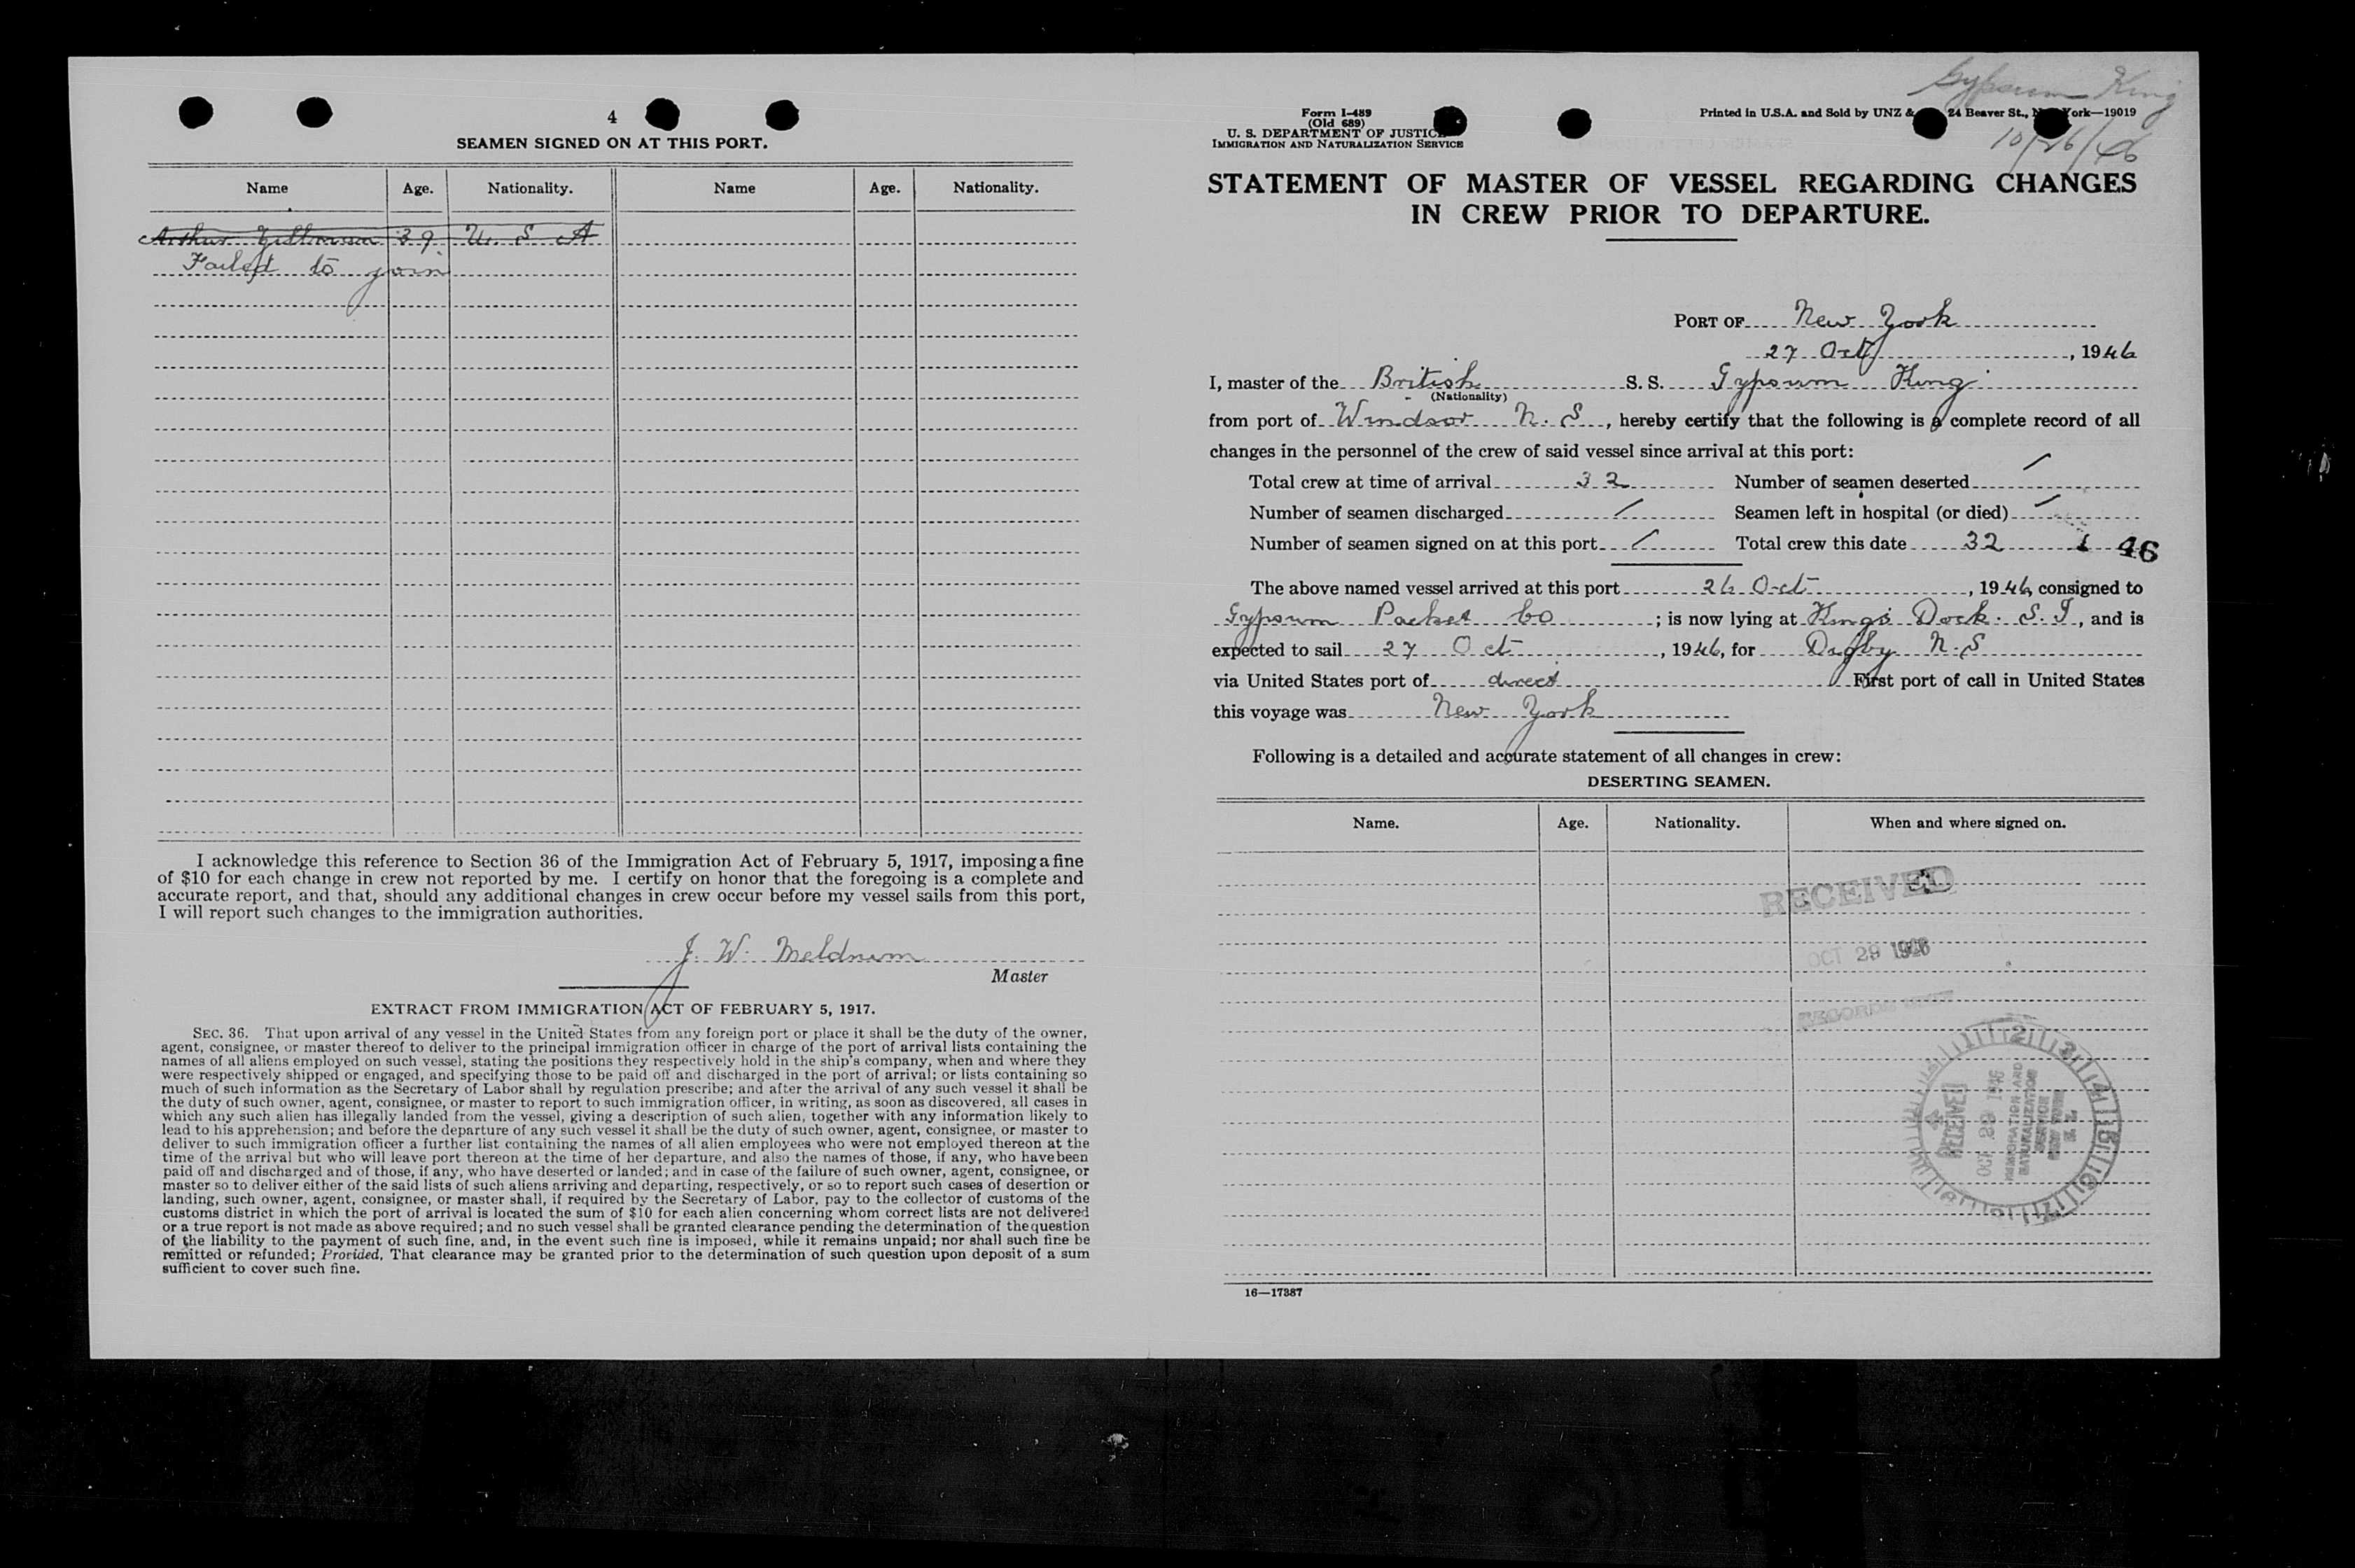 4
SEAMEN SIGNED ON AT THIS PORT.
Name Age. Nationality. Name Age. Nationality.
Arthur 39 U. S A
Failed to join
I acknowledge this reference to Section 36 of the Immigration Act of February 5, 1917, imposing a fine
of $10 for each change in crew not reported by me. I certify on honor that the foregoing is a complete and
accurate report, and that, should any additional changes in crew occur before my vessel sails from this port,
I will report such changes to the immigration authorities.
J. W. Meldrum
Master
EXTRACT FROM IMMIGRATION ACT OF FEBRUARY 5, 1917.
SEC. 36. That upon arrival of any vessel in the United States from any foreign port or place it shall be the duty of the owner,
agent, consignee, or master thereof to deliver to the principal immigration officer in charge of the port of arrival lists containing the
names of all aliens employed on such vessel, stating the positions they respectively hold in the ship's company, when and where they
were respectively shipped or engaged, and specifying those to be paid off and discharged in the port of arrival; or lists containing so
much of such information as the Secretary of Labor shall by regulation prescribe; and after the arrival of any such vessel it shall be
the duty of such owner, agent, consignee, or master to report to such immigration officer, in writing, as soon as discovered, all cases in
which any such alien has illegally landed from the vessel, giving a description of such alien, together with any information likely to
lead to his apprehension; and before the departure of any such vessel it shall be the duty of such owner, agent, consignee, or master to
deliver to such immigration officer a further list containing the names of all alien employees who were not employed thereon at the
time of the arrival but who will leave port thereon at the time of her departure, and also the names of those, if any, who have been
paid off and discharged and of those, if any, who have deserted or landed; and in case of the failure of such owner, agent, consignee, or
master so to deliver either of the said lists of such aliens arriving and departing, respectively, or so to report such cases of desertion or
landing, such owner, agent, consignee, or master shall, if required by the Secretary of Labor, pay to the collector of customs of the
customs district in which the port of arrival is located the sum of $10 for each alien concerning whom correct lists are not delivered
or a true report is not made as above required; and no such vessel shall be granted clearance pending the determination of the question
of the liability to the payment of such fine, and, in the event such fine is imposed, while it remains unpaid; nor shall such fine be
remitted or refunded; Provided, That clearance may be granted prior to the determination of such question upon deposit of a sum
sufficient to cover such fine.
Gypsum King
10/26/46
Form I-489
(Old 689)
U. S. DEPARTMENT OF JUSTICE
IMMIGRATION AND NATURALIZATION SERVICE
Printed in U.S.A. and Sold by UNZ & 24 Beaver St., New York—19019
STATEMENT OF MASTER OF VESSEL REGARDING CHANGES
IN CREW PRIOR TO DEPARTURE.
PORT OF New York
27 Oct, 1946
I, master of the British S. S. Gypsum King
(Nationality)
from port of Windsor N. S, hereby certify that the following is a complete record of all
changes in the personnel of the crew of said vessel since arrival at this port:
Total crew at time of arrival 32 Number of seamen deserted /
Number of seamen discharged / Seamen left in hospital (or died) /
Number of seamen signed on at this port / Total crew this date 32 46
The above named vessel arrived at this port 26 Oct, 1946, consigned to
Gypsum Packet Co; is now lying at Kings Dock. S. I, and is
expected to sail 27 Oct, 1946, for Digby N. S
via United States port of direct First port of call in United States
this voyage was New York
Following is a detailed and accurate statement of all changes in crew:
DESERTING SEAMEN.
Name. Age. Nationality. When and where signed on.
RECEIVED
OCT 29 1946
RECEIVED
OCT 29 1946
IMMIGRATION AND
NATURALIZATION
SERVICE
16—17387